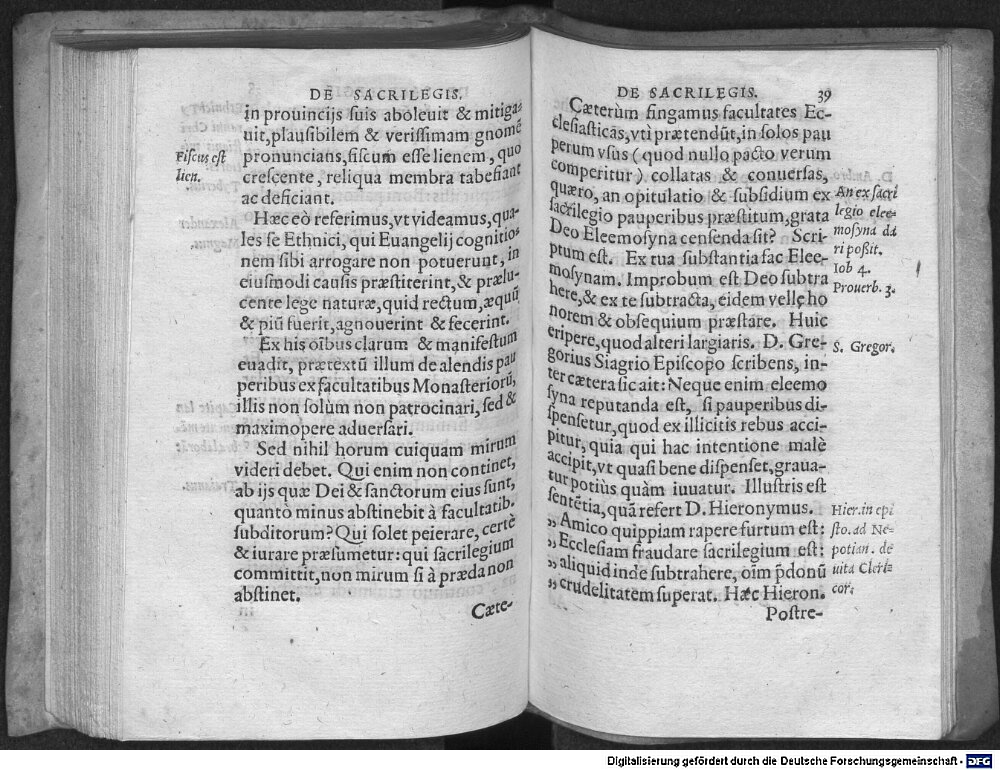 DE SACRILEGIS.
in prouincijs suis aboleuit & mitiga-
uit, plausibilem & verissimam gnomẽ
pronuncians, fiscum esse lienem, quo
crescente, reliqua membra tabefiant
ac deficiant.
Fiscus est
lien.
Hæc eò referimus, vt videamus, qua-
les se Ethnici, qui Euangelij cognitio-
nem sibi arrogare non potuerunt, in
eiusmodi causis præstiterint, & prælu-
cente lege naturæ, quid rectum, æquũ
& piũ fuerit, agnouerint & fecerint.
Ex his oĩbus clarum & manifestum
euadit, prætextũ illum de alendis pau
peribus ex facultatibus Monasteriorũ,
illis non solùm non patrocinari, sed &
maximopere aduersari.
Sed nihil horum cuiquam mirum
videri debet. Qui enim non continet,
ab ijs quæ Dei & sanctorum eius sunt,
quantò minus abstinebit à facultatib.
subditorum? Qui solet peierare, certè
& iurare præsumetur: qui sacrilegium
committit, non mirum si à præda non
abstinet.
Cæte-
DE SACRILEGIS.
39
Cæterùm fingamus facultates Ec-
clesiasticas, vtì prætendũt, in solos pau
perum vsus (quod nullo pacto verum
comperitur) collatas & conuersas,
quæro, an opitulatio & subsidium ex
sacrilegio pauperibus præstitum, grata
Deo Eleemosyna censenda sit? Scri-
ptum est. Ex tua substantia fac Elee-
mosynam. Improbum est Deo subtra
here, & ex te subtracta, eidem velle ho
norem & obsequium præstare. Huic
eripere, quod alteri largiaris. D. Gre-
gorius Siagrio Episcopo scribens, in-
ter cætera sic ait: Neque enim eleemo
syna reputanda est, si pauperibus di-
spensetur, quod ex illicitis rebus acci-
pitur, quia qui hac intentione malè
accipit, vt quasi bene dispenset, graua-
tur potiùs quàm iuuatur. Illustris est
sentẽtia, quã refert D. Hieronymus.
„ Amico quippiam rapere furtum est:
„ Ecclesiam fraudare sacrilegium est:
„ aliquid inde subtrahere, oĩm p̃donũ
„ crudelitatem superat. Hæc Hieron.
Postre-
An ex sacri
legio elee-
mosyna da
ri poßit.
Iob 4.
Prouerb. 3.
S. Gregor.
Hier. in epi
sto. ad Ne-
potian. de
uita Cleri-
cor.
Digitalisierung gefördert durch die Deutsche Forschungsgemeinschaft - DFG